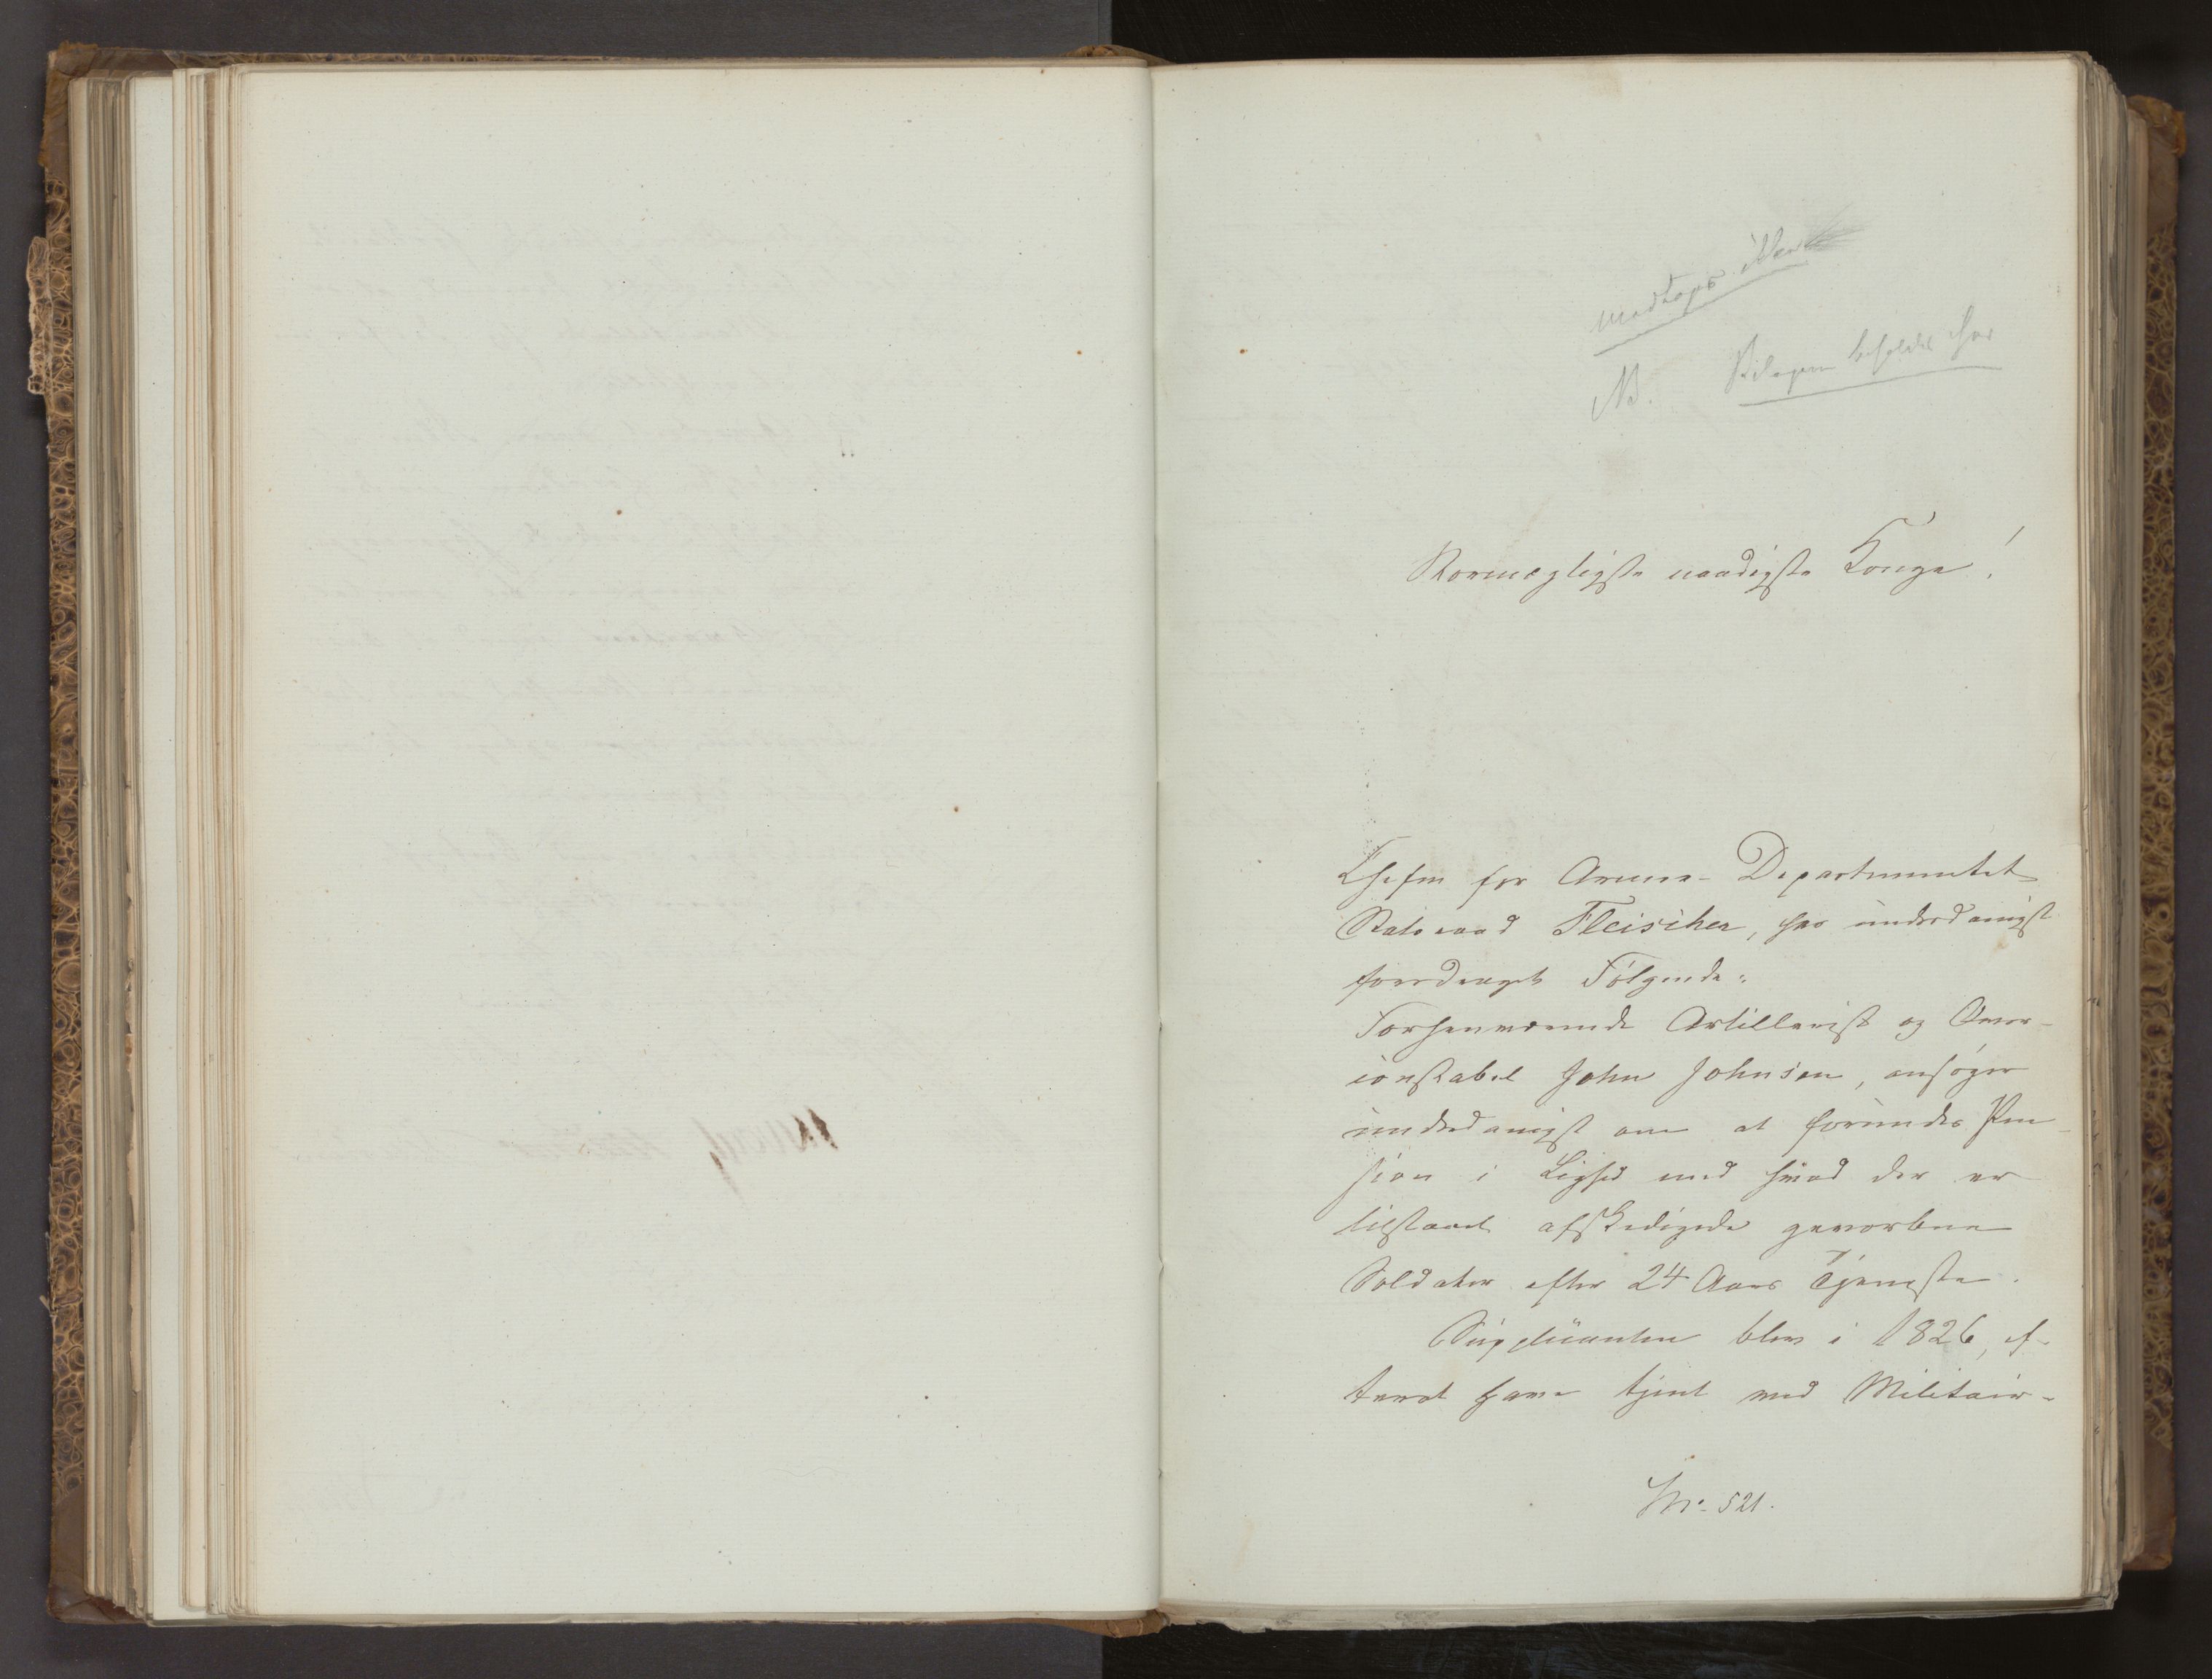 medtages ikke
NB. Bilagene beholdes her
Stormægtigste naadigste Konge!
Chefen for Armee-Departementet
Statsraad Fleischer, har underdanigst
foredraget Følgende:
Forhenværende Artillerist og Over-
constabel John Johnsen, ansøger
underdanigst om at forundes Pen-
sion i Lighed med hvad der er
tilstaaet afskedigede gevorbne
Soldater efter 24 Aars Tjeneste.
Supplicanten blev i 1826, ef-
terat have tjent ved Militair-
No. 521.